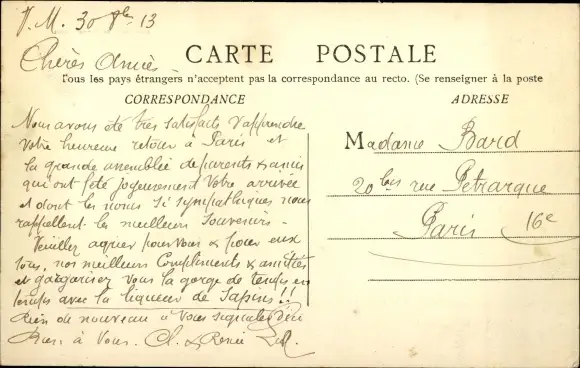 V. M. 30 8bre 13
Chères Amies
CARTE POSTALE
Tous les pays étrangers n'acceptent pas la correspondance au recto. (Se renseigner à la poste
CORRESPONDANCE
Nous avons été très satisfaits d'apprendre
votre heureuse retour à Paris et
la grande assemblée de parents & amis
qui ont fêté joyeusement votre arrivée
et dont les noms si sympathiques nous
rappellent les meilleurs souvenirs.
Veuillez agréer pour vous & pour eux
tous, nos meilleurs compliments & amitiés
et gargarisez vous la gorge de temps en
temps avec la liqueur de Sapins!!
Rien de nouveau à vous signaler d'ici
Bien à vous. Cl. & Renée
ADRESSE
Madame Bard
20 bis rue Pétrarque
Paris 16e